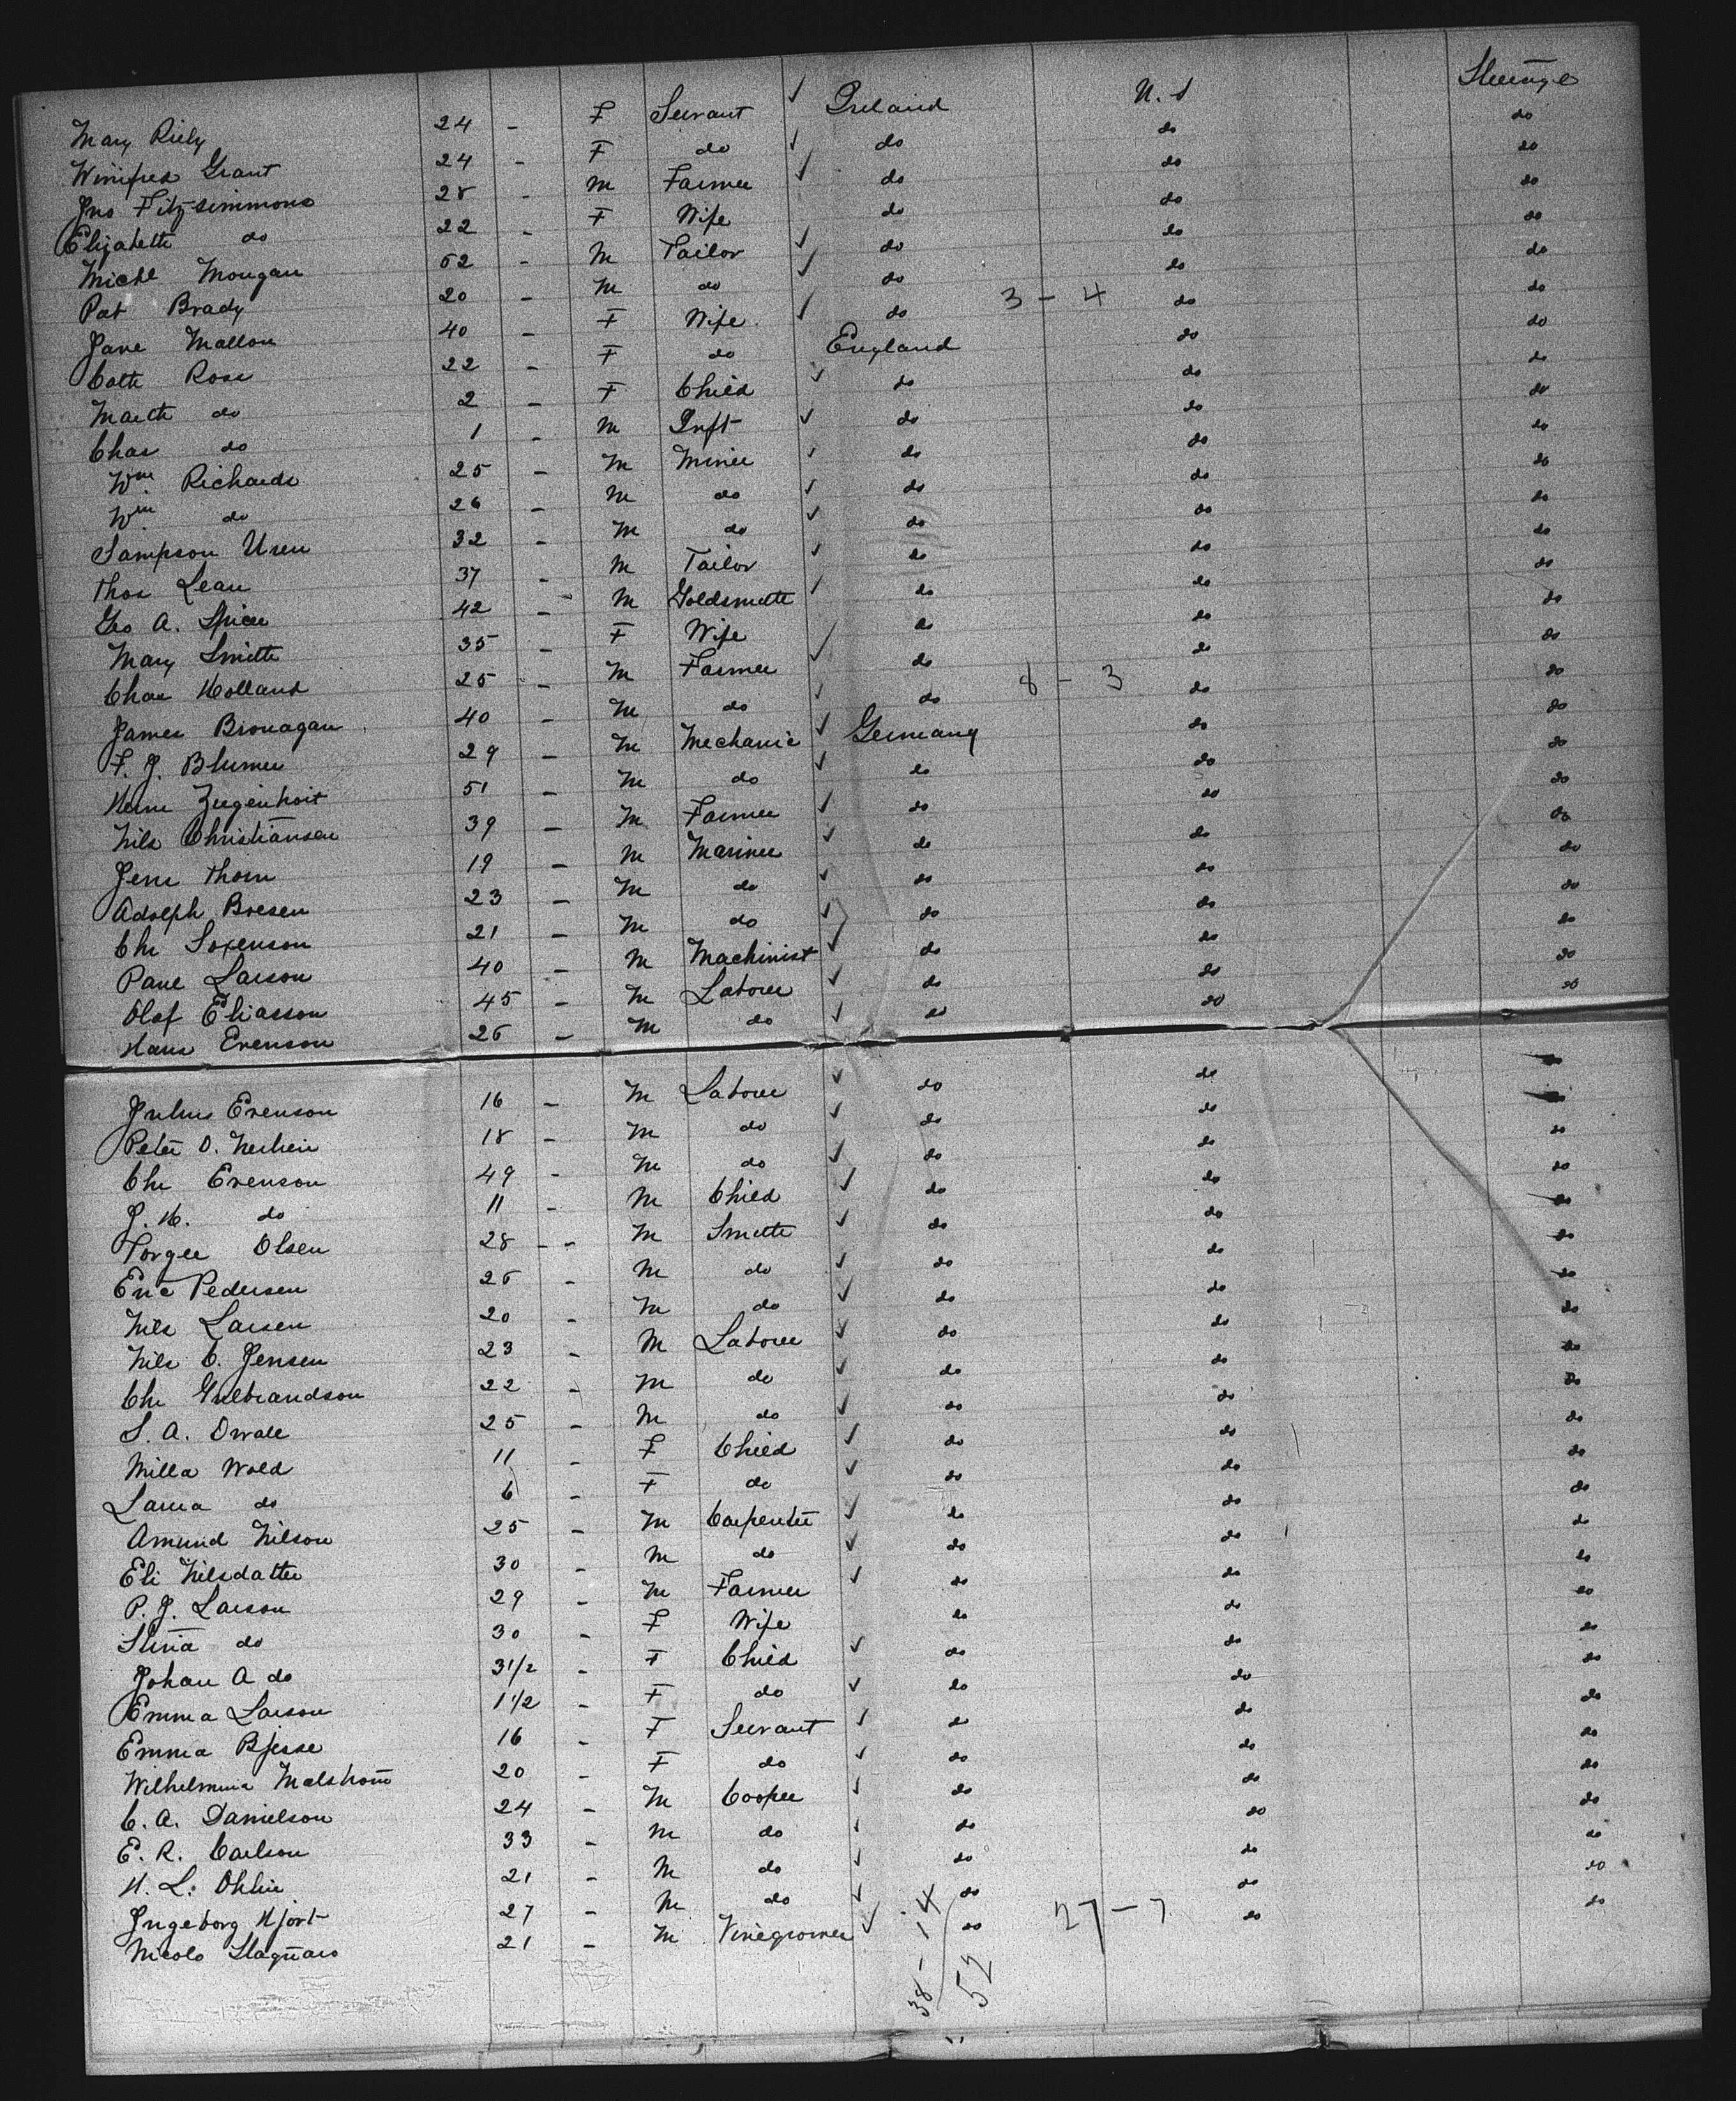 Mary Riely 24 - F Servant ✓ Ireland U.S Steerage
Winifred Grant 24 - F do ✓ do do do
Jno Fitzsimmons 28 - M Farmer ✓ do do do
Elizabeth do 22 - F Wife do do do
Michl Mongan 52 - M Tailor ✓ do do do
Pat Brady 20 - M do ✓ do do do
Jane Mallon 40 - F Wife ✓ do 3 - 4 do do
Cath Rose 22 - F do England do do
Marth do 2 - F Child ✓ do do do
Chas do 1 - M Inft ✓ do do do
Wm. Richards 25 - M Miner ✓ do do do
Wm. do 26 - M do ✓ do do do
Sampson Uren 32 - M do ✓ do do do
Thos Lean 37 - M Tailor ✓ do do do
Geo A. Spicer 42 - M Goldsmith ✓ do do do
Mary Smith 35 - F Wife do do do
Chas Holland 25 - M Farmer ✓ do do do
James Bronagan 40 - M do ✓ do 8 - 3 do do
F. J. Blumer 29 - M Mechanic ✓ Germany do do
Herm Ziegenhoit 51 - M do ✓ do do do
Nils Christiansen 39 - M Farmer ✓ do do do
Jens Thorn 19 - M Mariner ✓ do do do
Adolph Boesen 23 - M do ✓ do do do
Chr Sorenson 21 - M do ✓ do do do
Pane Larson 40 - M Machinist ✓ do do do
Olof Eliasson 45 - M Laborer ✓ do do do
Hans Evenson 26 - M do ✓ do do do
Julius Evenson 16 - M Laborer ✓ do do do
Peter O. 18 - M do ✓ do do do
Chr Evenson 49 - M do ✓ do do do
J. H. do 11 - M Child ✓ do do do
Torger Olsen 28 - - M Smith ✓ do do do
Eric Pedersen 26 - M do ✓ do do do
Nils Larsen 20 - M do ✓ do do do
Nils C. Jensen 23 - M Laborer ✓ do do do
Chr Gulbrandson 22 - M do ✓ do do do
S. A. 25 - M do ✓ do do do
Milla Wold 11 - F Child ✓ do do do
Laura do 6 - F do ✓ do do do
Amund Nilson 25 - M Carpenter ✓ do do do
Eli Nilsdatter 30 - M do ✓ do do do
P. J. Larson 29 - M Farmer ✓ do do do
Stina do 30 - F Wife do do do
Johan A do 3 1/2 - F Child ✓ do do do
Emma Larson 1 1/2 - F do ✓ do do do
Emma Bjesse 16 - F Servant ✓ do do do
Wilhelmina Malstrom 20 - F do ✓ do do do
C. A. Danielson 24 - M Cooper ✓ do do do
E. R. Carlson 33 - M do ✓ do do do
H. L. Ohlin 21 - M do ✓ do do do
Ingeborg Hjort 27 - M do ✓ do do do
Nicolo 21 - M Vinegrower ✓ do 27 - 7 do do
38 - 14
52